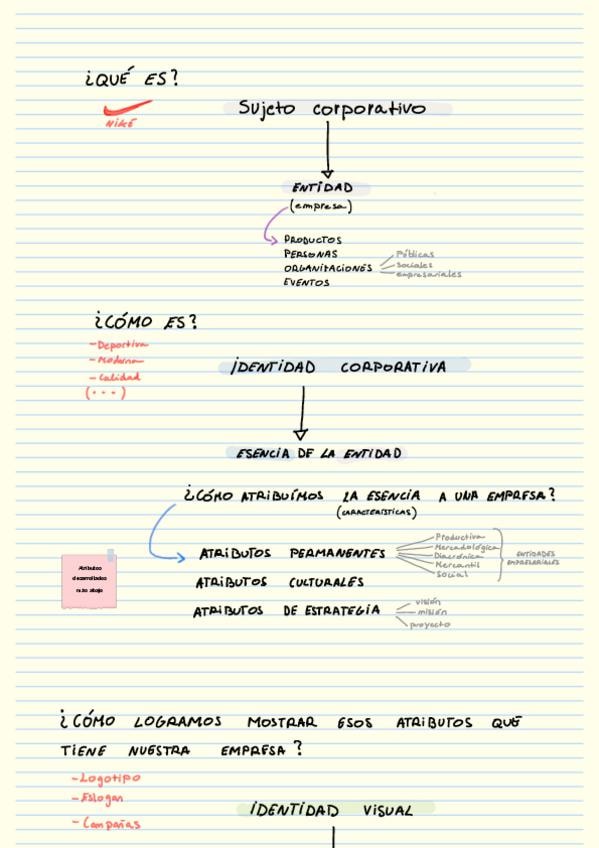 ¿QUÉ ES?
NIKE
Sujeto corporativo
ENTIDAD
(empresa)
PRODUCTOS
PERSONAS
ORGANIZACIONES
EVENTOS
Públicas
Sociales
empresariales
¿CÓMO ES?
-Deportiva
-Moderna
-Calidad
(...)
IDENTIDAD CORPORATIVA
ESENCIA DE LA ENTIDAD
¿CÓMO ATRIBUÍMOS LA ESENCIA A UNA EMPRESA?
(CARACTERÍSTICAS)
ATRIBUTOS PERMANENTES
Productiva
Mercadológica
Diacrónica
Mercantil
Social
ENTIDADES
EMPRESARIALES
Atributos
desarrollados
más abajo
ATRIBUTOS CULTURALES
ATRIBUTOS DE ESTRATEGIA
visión
misión
proyecto
¿CÓMO LOGRAMOS MOSTRAR ESOS ATRIBUTOS QUE
TIENE NUESTRA EMPRESA?
-Logotipo
-Eslogan
-Campañas
IDENTIDAD VISUAL